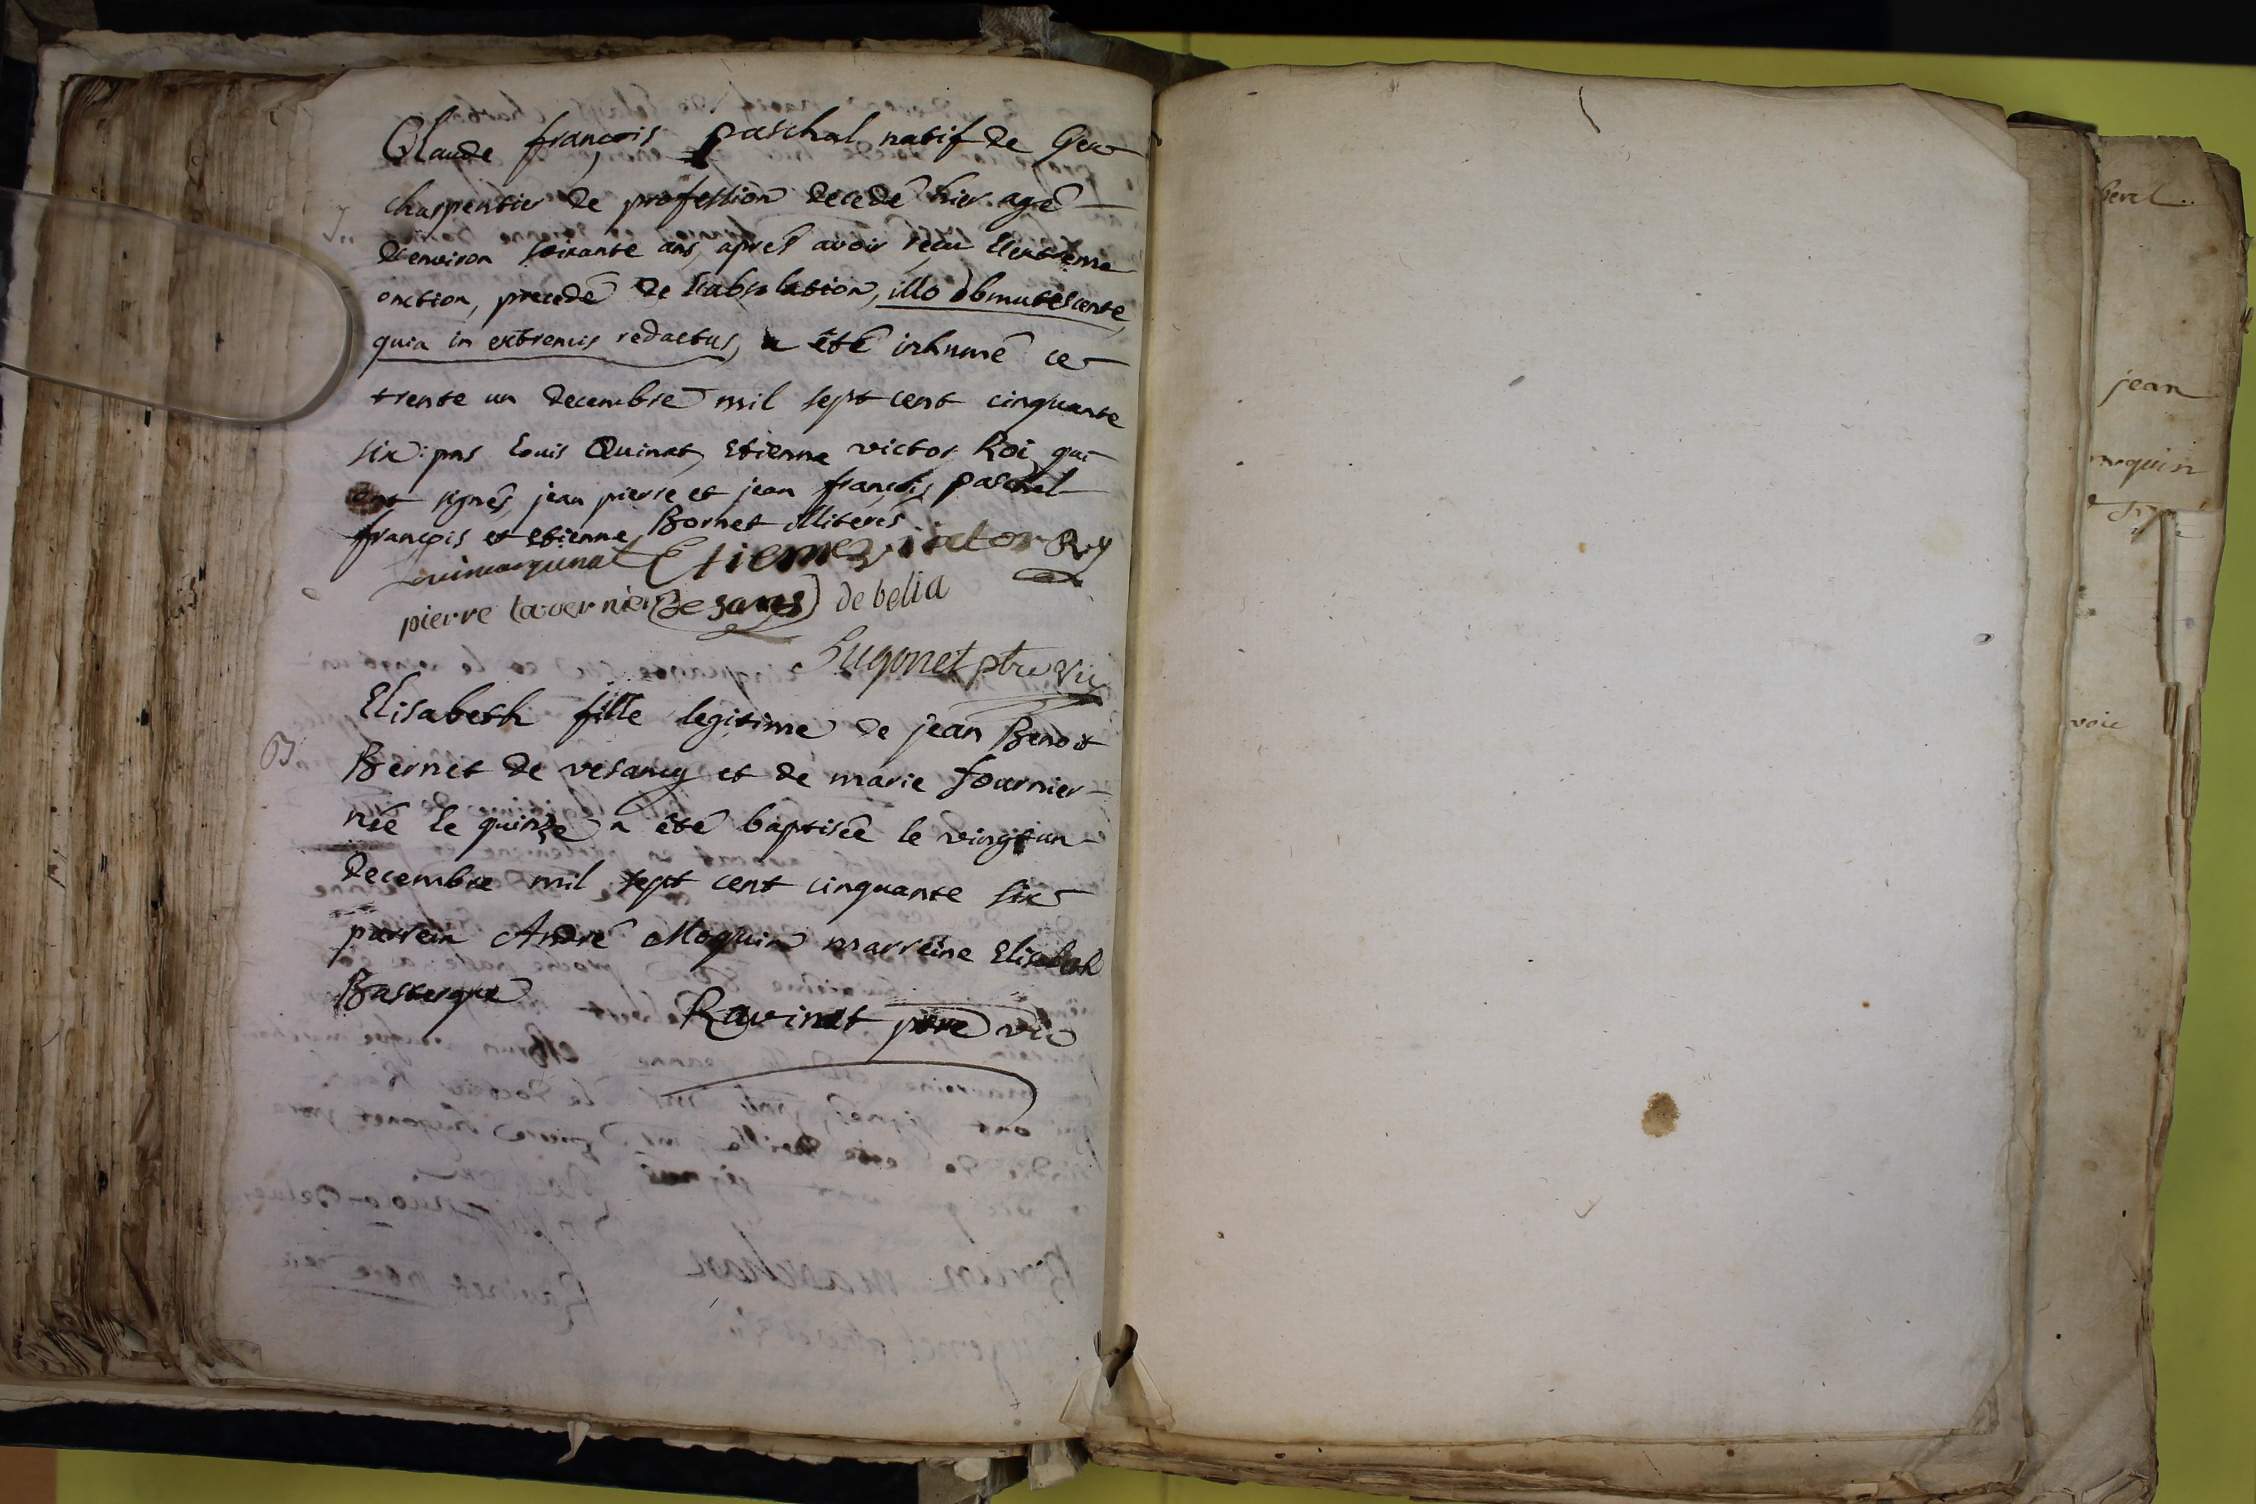 Claude françois paschal natif de Gex
charpentier de profession decedé hier agé
d'environ soixante ans, aprés avoir reçu l'extreme
onction, precedé de l'absolution, illo obmutescente,
quia in extremis redactus, a été inhumé ce
trente un decembre mil sept cent cinquante
six: prns Louis Quinat, Etienne victor Roi qui
ont signés, jean pierre et jean françois paschal
françois et etienne Bornet illiterés
Etiene victor Roy
pierre tavernier De sans de belia
Hugonet ptre vic
Elisabeth fille legitime de jean Benoit
B
Bernet de vesancy et de marie fournier
née le quinze a été baptisée le vingt un
decembre mil sept cent cinquante six
parrein André Moquin marreine Elisabeth
Basterque
Ravinet ptre vic
jean
voie